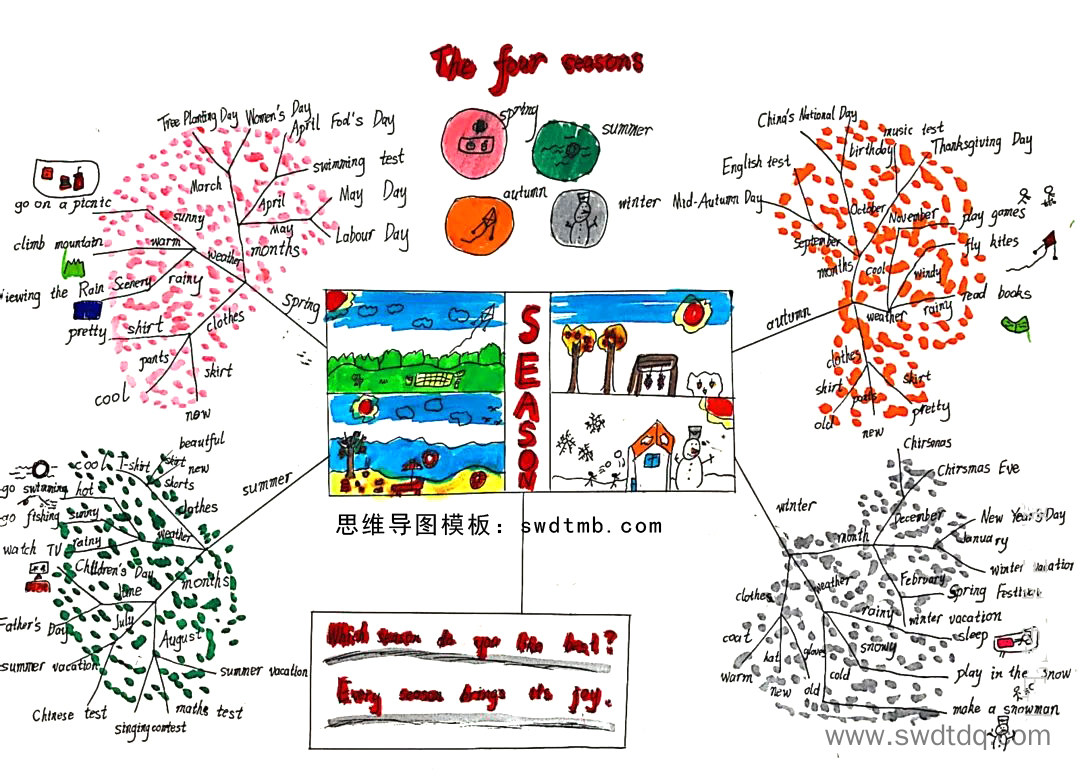 The four seasons
spring
summer
autumn
winter
Tree Planting Day
Women's Day
April Fod's Day
swimming test
March
April
May Day
May
Labour Day
months
go on a picnic
sunny
climb mountain
warm
weather
Viewing the Rain
Scenery
rainy
pretty
shirt
clothes
pants
skirt
cool
new
spring
China's National Day
music test
birthday
Thanksgiving Day
English test
Mid-Autumn Day
October
November
play games
September
months
cool
fly kites
windy
weather
rainy
read books
autumn
clothes
shirt
skirt
pants
old
new
pretty
SEASON
beautiful
cool
T-shirt
skirt
new
shorts
clothes
go swimming
hot
go fishing
sunny
weather
watch TV
rainy
Children's Day
months
June
Father's Day
July
August
summer vacation
summer vacation
Chinese test
singing contest
maths test
summer
思维导图模板：swdtmb.com
Which season do you like best?
Every season brings its joy.
winter
Chirsmas
Chirsmas Eve
December
month
New Year's Day
January
winter vacation
February
Spring Festival
winter vacation
clothes
weather
rainy
sleep
coat
hat
gloves
snowy
cold
warm
new
old
play in the snow
make a snowman
www.swdtdq.com